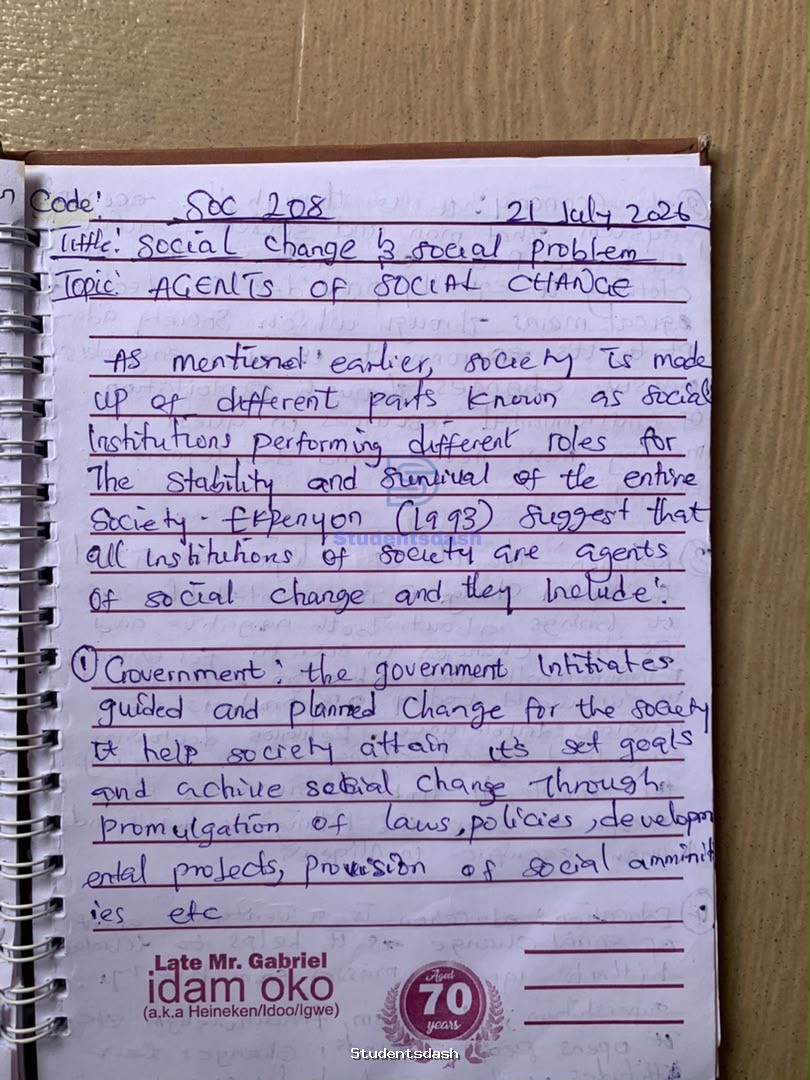 Code: SOC 208 21 July 2026
Tittle: Social Change & social problem
Topic: AGENTS OF SOCIAL CHANGE
As mentioned earlier, society is made
up of different parts known as social
Institutions performing different roles for
The Stability and Survival of the entire
Society. Ekpenyon (1993) Suggest that
all institutions of society are agents
Of social change and they Include:
① Government: the government Intitiates
guided and planned Change for the society
It help society attain it's set goals
and achive social Change through
Promulgation of laws, policies, developm
ental protects, Provision of social amminit
ies etc
Late Mr. Gabriel
idam oko
(a.k.a Heineken/Idoo/Igwe)
Aged
70
years
Studentsdash
Studentsdash